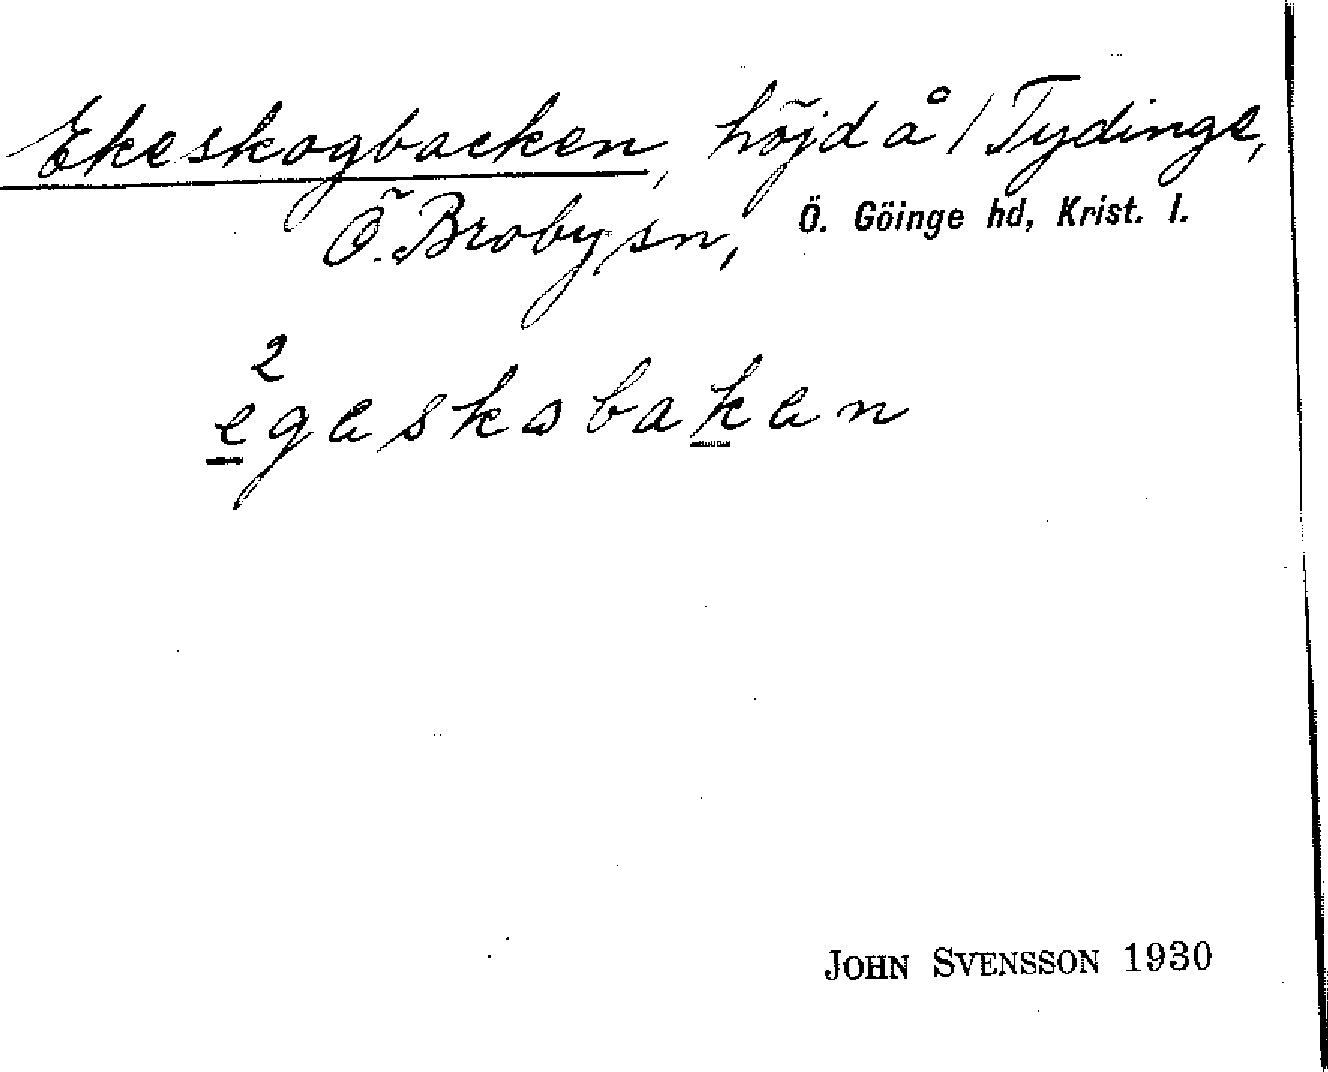 Ekeskogbacken, höjd å / Tydinge,
Ö. Broby sn, Ö. Göinge hd, Krist. l.
2
egeskobaken
JOHN SVENSSON 1930